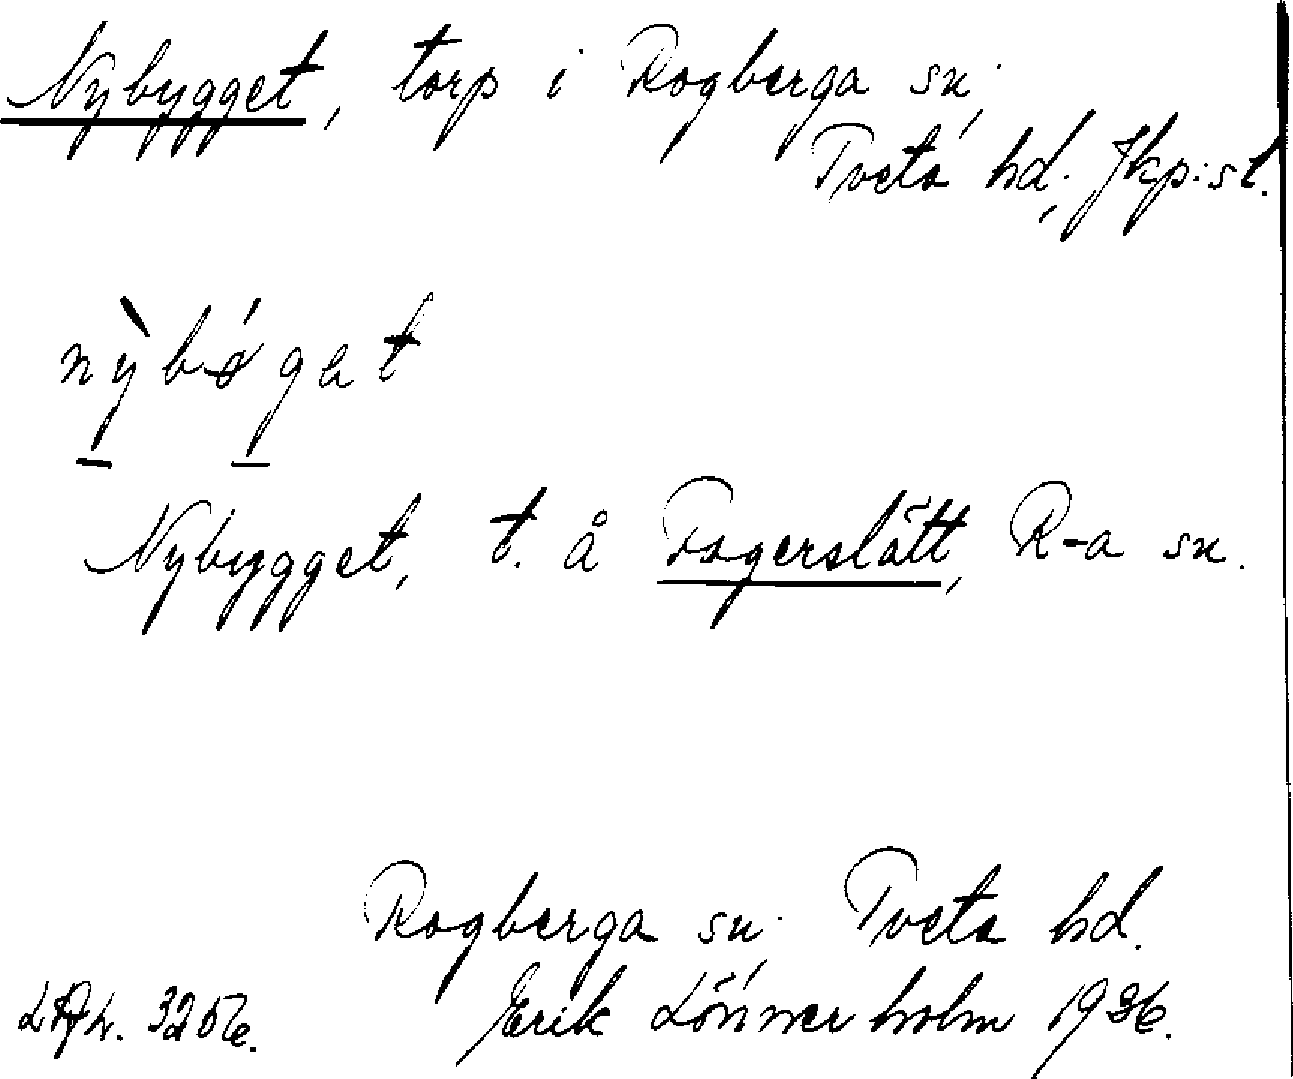 Nybygget, torp i Rogberga sn.,
Tveta hd., Jkp:s l.
Nybygget, t. å Fagerslätt, R-a sn.
Rogberga sn., Tveta hd.
Erik Lönnerholm 1936.